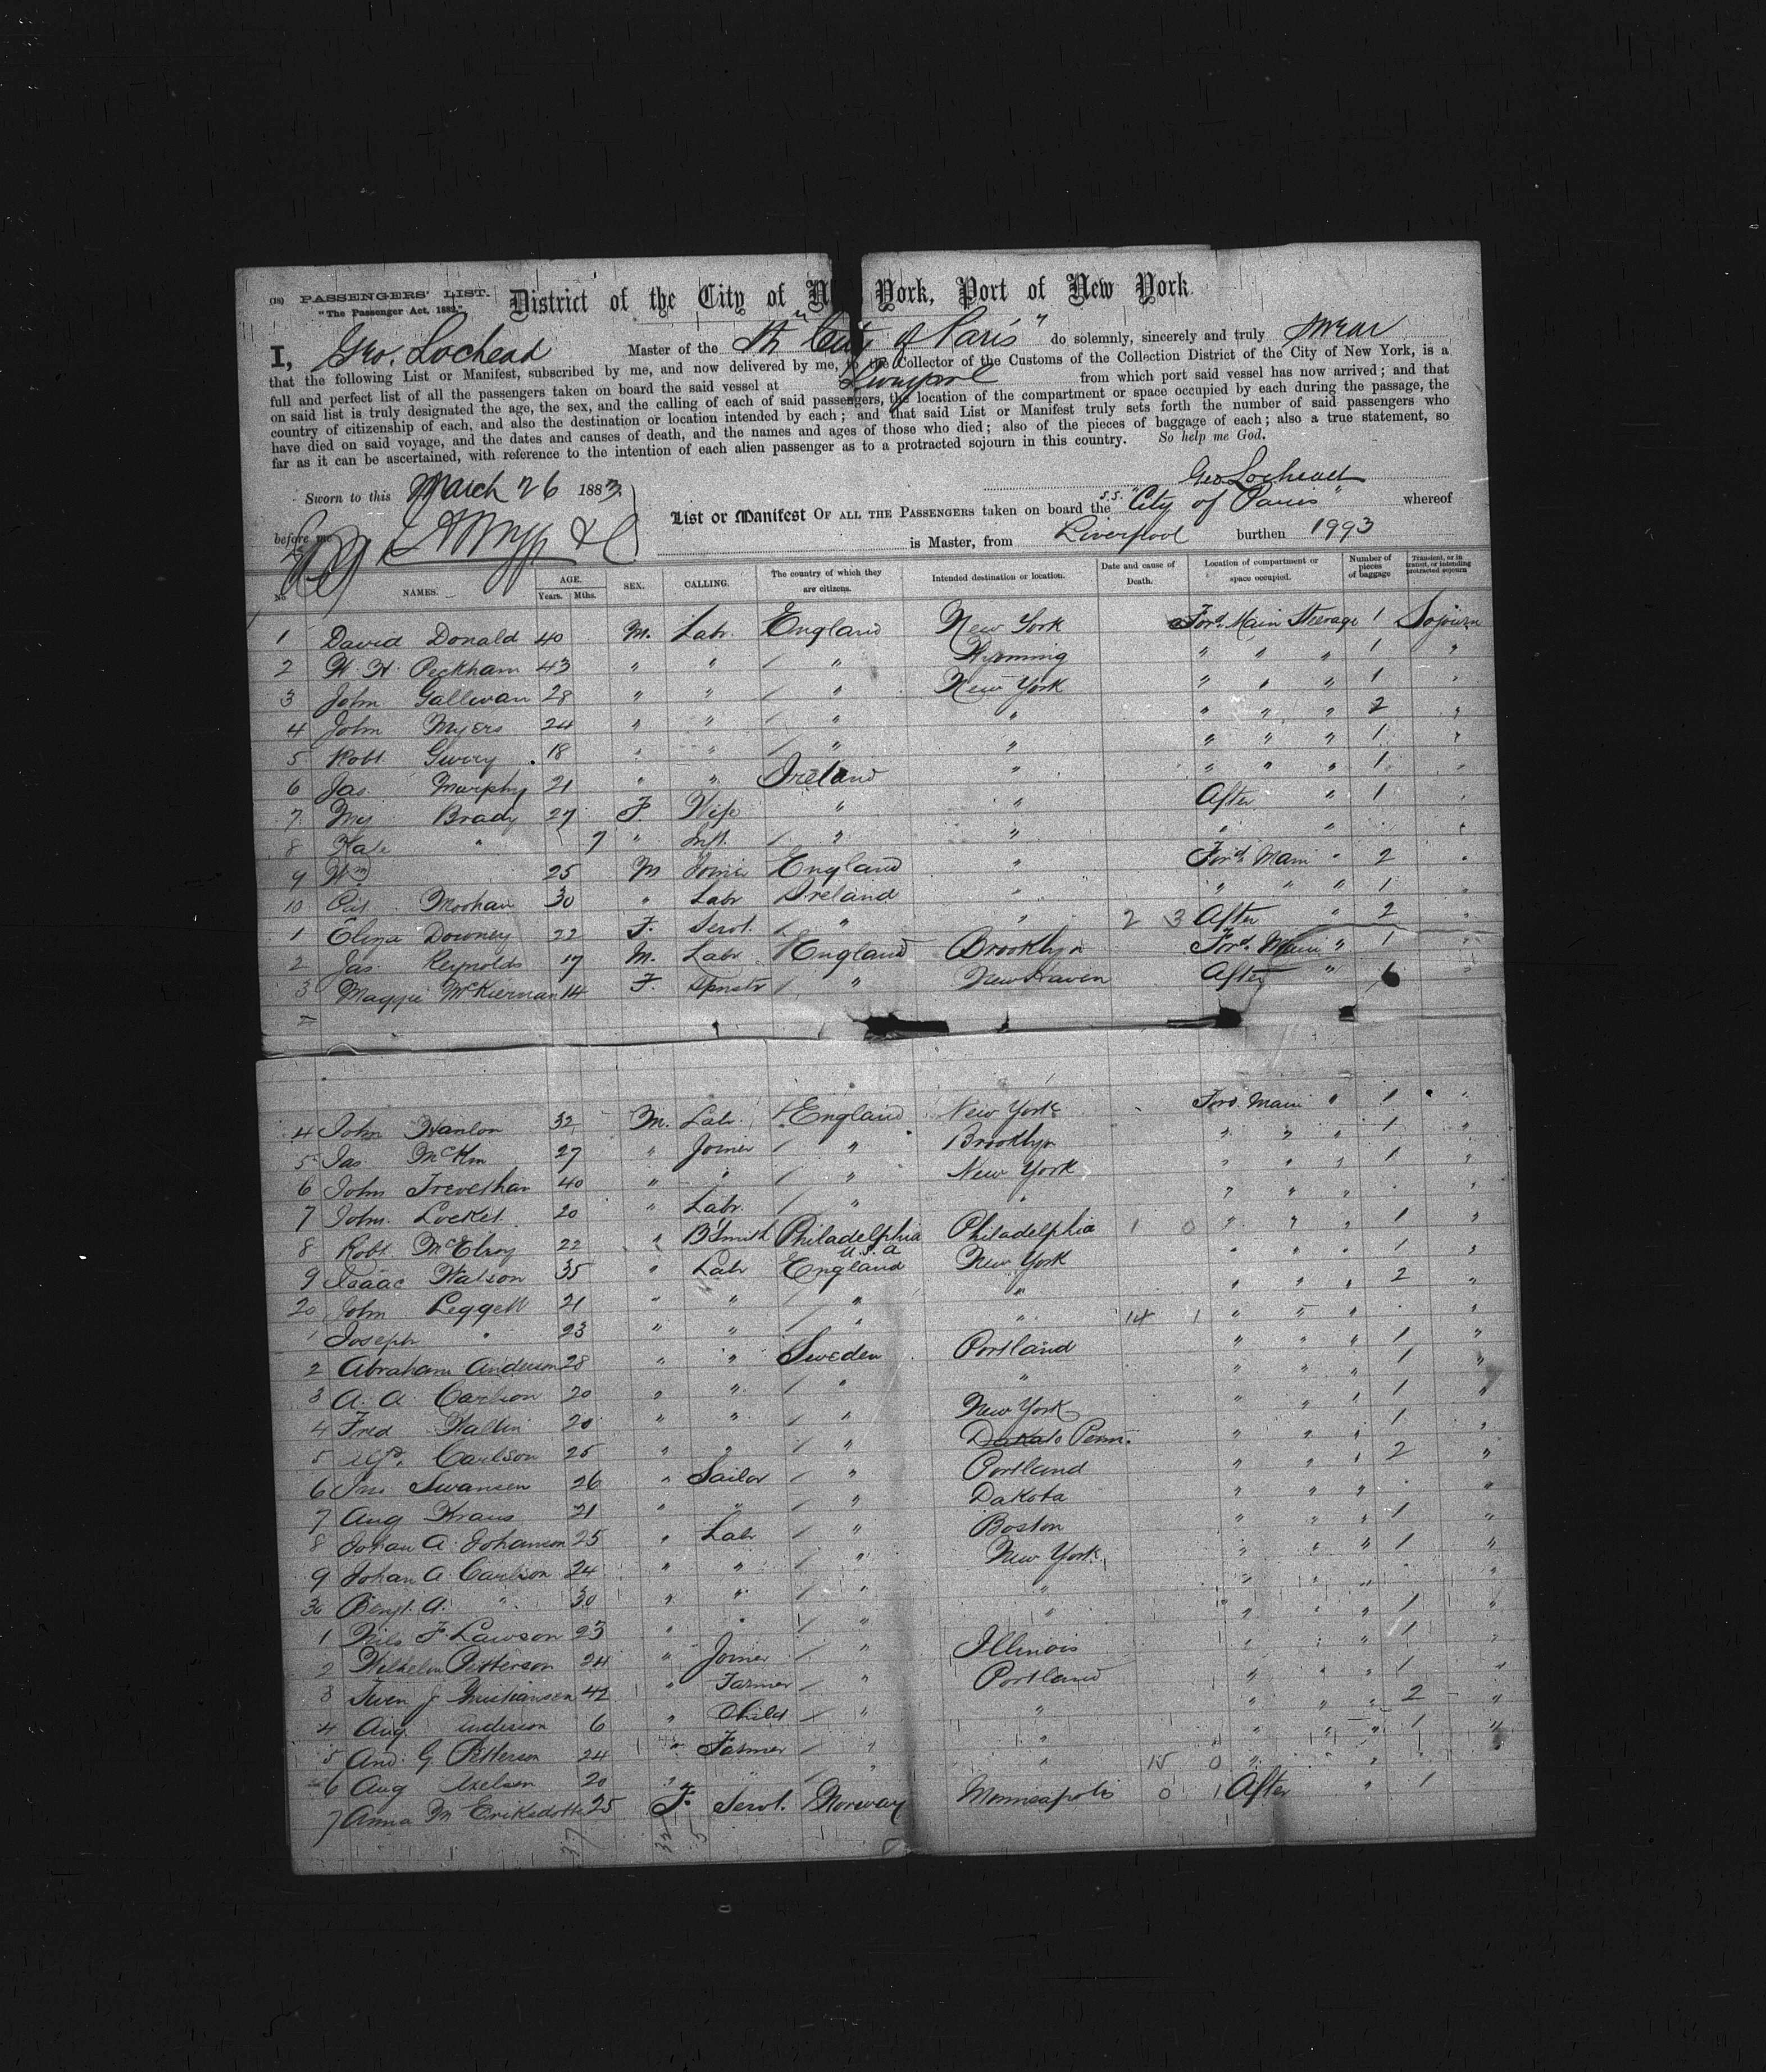 (18) PASSENGERS' LIST.
"The Passenger Act, 1882."
District of the City of N York, Port of New York
I, Geo. Lochead Master of the "City of Paris" do solemnly, sincerely and truly swear
that the following List or Manifest, subscribed by me, and now delivered by me, to the Collector of the Customs of the Collection District of the City of New York, is a
full and perfect list of all the passengers taken on board the said vessel at Liverpool from which port said vessel has now arrived; and that
on said list is truly designated the age, the sex, and the calling of each of said passengers, the location of the compartment or space occupied by each during the passage, the
country of citizenship of each, and also the destination or location intended by each; and that said List or Manifest truly sets forth the number of said passengers who
have died on said voyage, and the dates and causes of death, and the names and ages of those who died; also of the pieces of baggage of each; also a true statement, so
far as it can be ascertained, with reference to the intention of each alien passenger as to a protracted sojourn in this country. So help me God.
Geo Lochead
Sworn to this March 26 1883
before me
List or Manifest OF ALL THE PASSENGERS taken on board the S.S. "City of Paris" whereof
is Master, from Liverpool burthen 1993
No NAMES. AGE. Years. Mths. SEX. CALLING. The country of which they are citizens. Intended destination or location. Date and cause of Death. Location of compartment or space occupied. Number of pieces of baggage Transient, or in transit, or intending protracted sojourn
1 David Donald 40 M. Labr. England New York Ford. Main Steerage 1 Sojourn
2 W. H. Peckham 43 " " " Wyoming " " " 1 "
3 John Gallivan 28 " " " New York " " " 1 "
4 John Myers 24 " " " " " " " 2 "
5 Robt 18 " " " " " " " 1 "
6 Jas. Murphy 21 " " Ireland " " " " 1 "
7 Mrs Brady 27 F. Wife " " After " 1 "
8 Kate " 7 " Inft. " " " " "
9 Wm 25 M Joiner England " Ford. Main " 2 "
10 Pat Moohan 30 " Labr Ireland " " " " 1 "
1 Eliza Downey 22 F. Servt. " " 2 3 After " 2 "
2 Jas. Reynolds 17 M. Labr. England Brooklyn Ford. Main " 1 "
3 Maggie McKiernan 14 F. Spnstr " New Haven After " 6 "
4 John Hanlon 32 M. Labr. England New York Ford. Main " 1 "
5 Jas. McKim 27 " Joiner " Brooklyn " " " 1 "
6 John Trevethan 40 " " " New York " " " 1 "
7 John Locket 20 " Labr. " " " " " "
8 Robt. McElroy 22 " B'Smith Philadelphia U.S.A Philadelphia 1 0 " " " 1 "
9 Isaac Watson 35 " Labr England New York " " " 1 "
20 John Leggett 21 " " " " " " " 2 "
1 Joseph " 23 " " " " 14 1 " " " "
2 Abraham Anderson 28 " " Sweden Portland " " " 1 "
3 A. A. Carlson 20 " " " " " " " 1 "
4 Fred Wallin 20 " " " New York " " " 1 "
5 Carlson 25 " " " Dakato Penn. " " " 1 "
6 Swansen 26 " Sailor " Portland " " " 2 "
7 Aug Kraus 21 " " " Dakota " " " "
8 Johan A. Johanson 25 " Labr " Boston " " " 1 "
9 Johan A. Carlson 24 " " " New York " " " 1 "
30 Bengt. A. " 30 " " " " " " " "
1 Nils F. Lawson 23 " " " " " " " 1 "
2 Wilhelm Petterson 24 " Joiner " Illinois " " " 1 "
3 Swen J Christiansen 42 " Farmer " Portland " " " 1 "
4 Aug. Anderson 6 " Child " " " " " 2 "
5 And. G. Petterson 24 " Farmer " " " " " 1 "
6 Aug Axelsen 20 " " " " 15 0 " " "
7 Anna M Eriksdotter 25 F. Servt. Norway Minneapolis 0 1 After " 1
37 32 5